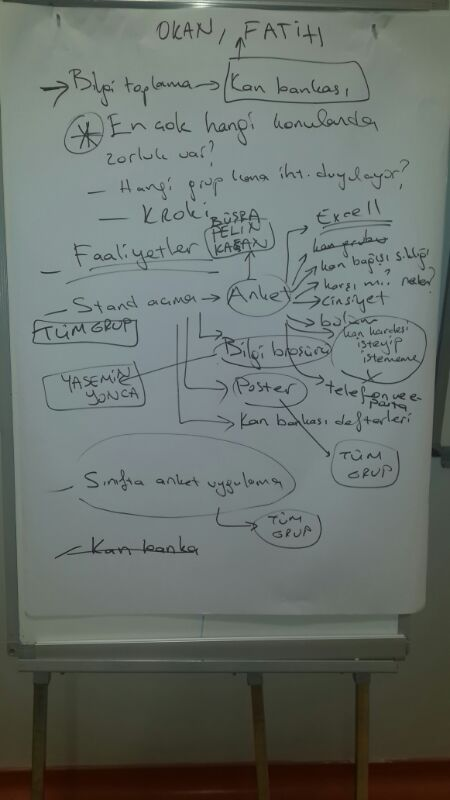 OKAN, FATİH
Bilgi toplama → Kan bankası
* En çok hangi konularda
zorluk var?
- Hangi grup kana iht. duyuluyor?
- KROKİ
BÜŞRA
PELİN
KAĞAN
Excell
- Faaliyetler
kan grubu
kan bağışı sıklığı
karşı mı? neden?
- Stand açma → Anket
cinsiyet
bölüm
TÜM GRUP
kan kardeşi
isteyip
istememe
Bilgi broşürü
YASEMİN
YONCA
Poster
telefon ve e-
posta
Kan bankası defterleri
TÜM
GRUP
- Sınıfta anket uygulama
TÜM
GRUP
- Kan banka